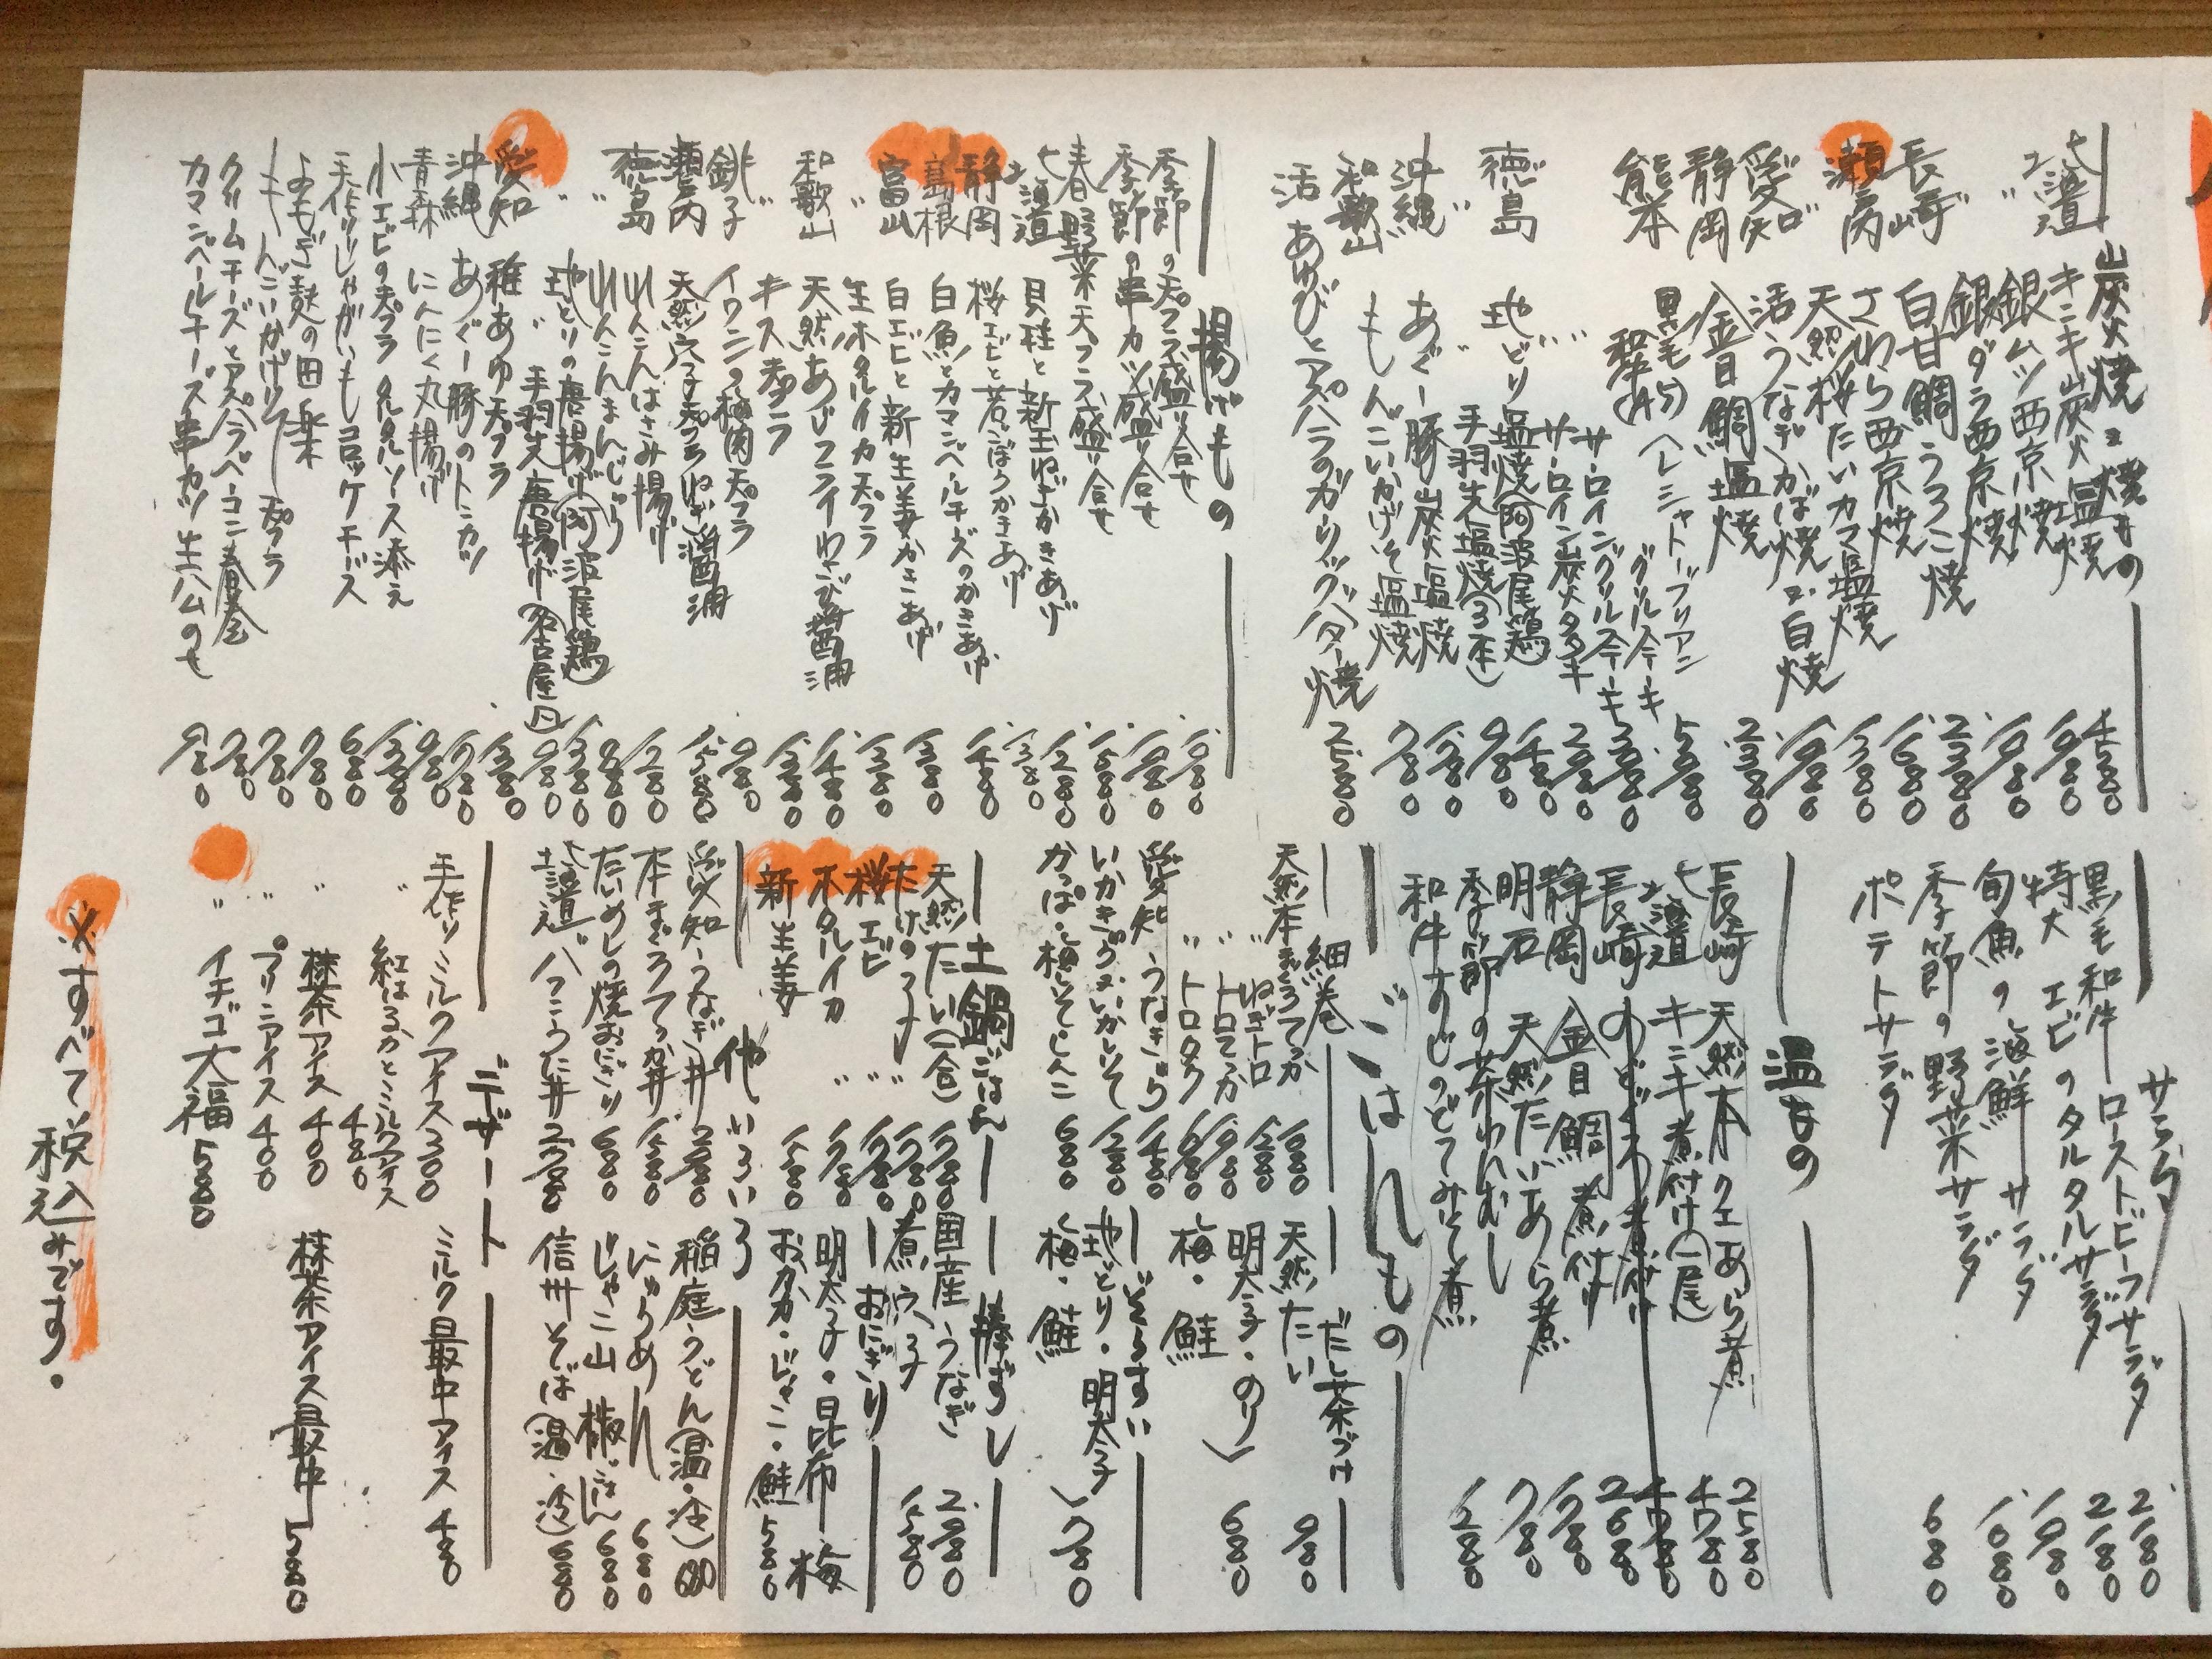 炭火焼と焼もの
北海道 キンキ炭火塩焼 4580
〃 銀ムツ西京焼 1980
銀ダラ西京焼 1980
長崎 白甘鯛うろこ焼 2380
〃 さわら西京焼 1680
瀬戸内 天然桜たいカマ塩焼 1380
愛知 活うなぎかば焼・白焼
静岡 金目鯛塩焼 2380
熊本 黒毛和牛(A5)
シャトーブリアン
サーロイングリルステーキ
サーロイン炭火タタキ
徳島 地どり塩焼(阿波尾鶏) 1480
〃 〃 手羽先塩焼(3本) 980
沖縄 あぐー豚炭火塩焼
和歌山 もんごいかげそ塩焼 780
活あわびとアスパラのガーリックバター焼 2580
揚げもの
季節の天プラ盛り合せ
季節の串カツ盛り合せ
春野菜天プラ盛り合せ
北海道 貝柱と新玉ねぎかきあげ 1280
静岡 桜エビと若ごぼうかきあげ 1380
島根 白魚とカマンベールチーズのかきあげ 1480
富山 白エビと新生姜かきあげ 1380
〃 生ホタルイカ天プラ 1380
和歌山 天然あじフライわさび醤油 1480
〃 キス天プラ
銚子 イワシの梅肉天プラ 980
瀬戸内 天然穴子天プラねぎ醤油 1580
徳島 れんこんはさみ揚げ 1280
〃 れんこんまんじゅう 880
〃 地どりの唐揚げ(阿波尾鶏) 1380
〃 手羽先唐揚げ(名古屋風) 980
愛知 稚あゆ天プラ 1380
沖縄 あぐー豚のトンカツ 1780
青森 にんにく丸揚げ 980
小エビの天プラ タルタルソース添え 1380
手作りじゃがいもコロッケチーズ 680
よもぎ麩の田楽 780
もんごいかげそ天プラ 780
クリームチーズとアスパラベーコン春巻 780
カマンベールチーズ串カツ生ハムのせ 980
サラダ
黒毛和牛 ローストビーフサラダ 2180
特大エビのタルタルサラダ 2180
旬魚の海鮮サラダ 1980
季節の野菜サラダ 1080
ポテトサラダ 680
温もの
長崎 天然本クエあら煮 2580
北海道 キンキ煮付け(一尾) 4780
長崎 のどぐろ煮付け
静岡 金目鯛煮付け 2680
明石 天然たいあら煮 1780
季節の茶わんむし 780
和牛すじのどてみそ煮 1280
ごはんもの
細巻
天然本まぐろてっか
〃 ねぎトロ 1280
〃 トロてっか
〃 トロタク 1680
愛知 うなきゅう 1480
いかきゅう・いかしそ 1280
かっぱ・梅しそ・しんこ 680
だし茶づけ
天然たい 980
明太子・のり
梅・鮭
680
ぞうすい
地どり・明太子
梅・鮭
780
土鍋ごはん
天然たい(一合) 1780
たけのこ 〃 1780
桜エビ 〃 1780
ホタルイカ 〃
新生姜 1580
棒ずし
国産うなぎ 2980
煮穴子 1580
おにぎり
明太子・昆布・梅
おかか・じゃこ・鮭 580
他いろいろ
愛知 うなぎ丼
本まぐろてっか丼 1580
たいめしの焼おにぎり 680
北海道 バフンうに丼
稲庭うどん(温・冷) 680
にゅうめん 680
じゃこ山椒ごはん 680
信州そば(温・冷) 680
デザート
手作りミルクアイス 300
〃 紅はるかとミルクアイス 480
〃 抹茶アイス 400
〃 プリンアイス 400
〃 イチゴ大福 580
ミルク最中アイス 480
抹茶アイス最中 580
※すべて税込みです。